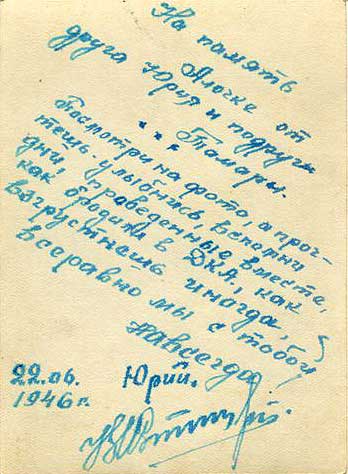 На память
Алочке от
друга Юрия и подруги
Тамары.
Посмотри на фото, а проч-
тешь-улыбнись, вспомни
дни, проведенные вместе,
как бродили в ДКА, как
взгрустнешь иногда,
всеравно мы с тобой
навсегда!
22.06. Юрий.
1946 г.